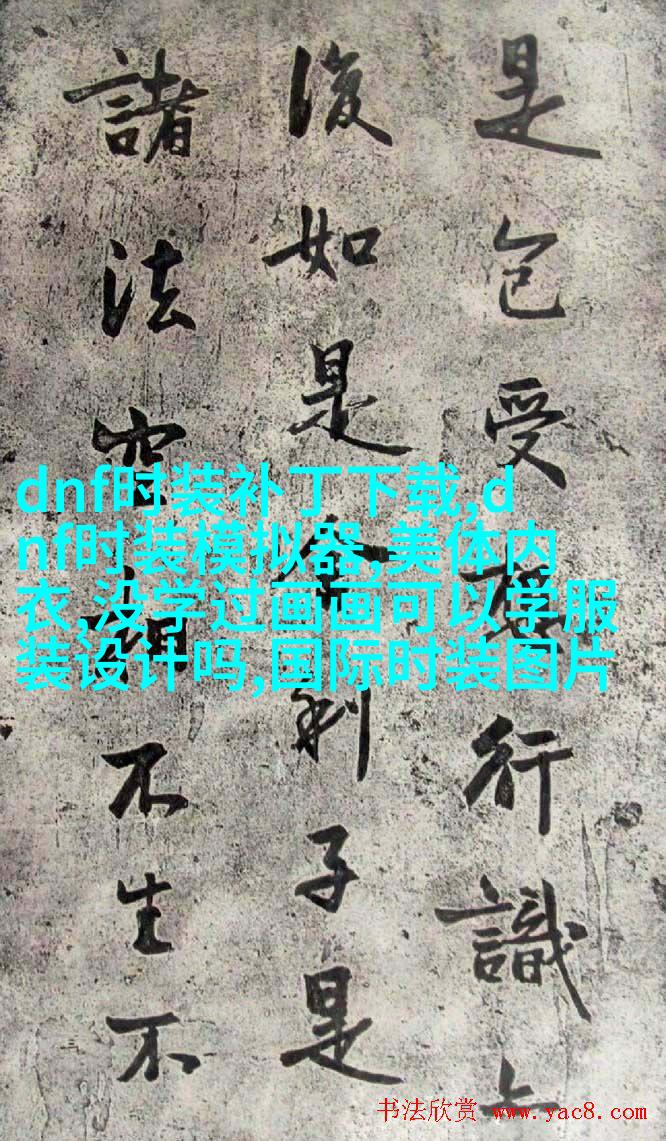 是色受行識
復如是舍利子是
諸法空相不生不
dnf时装补丁下载,d
nf时装模拟器,美体内
衣,没学过画画可以学服
装设计吗,国际时装图片
书法欣赏 www.yac8.com